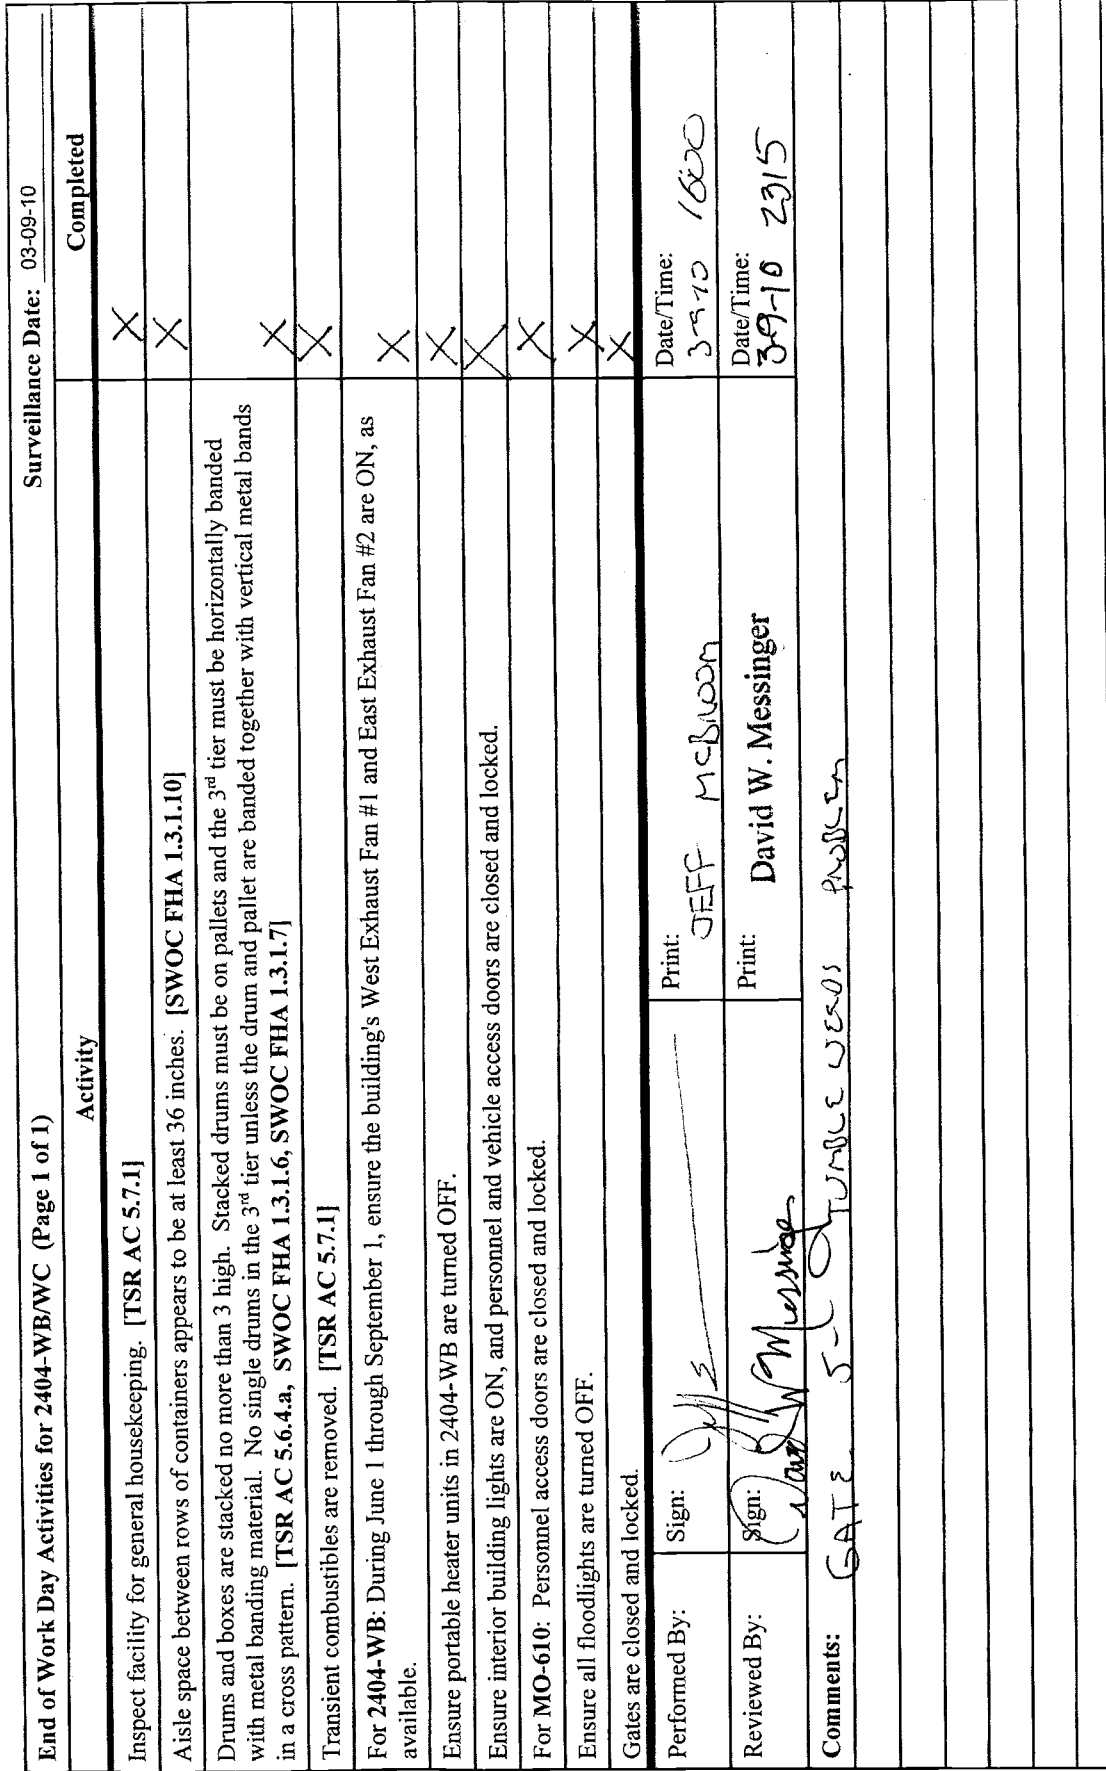 End of Work Day Activities for 2404-WB/WC (Page 1 of 1) Surveillance Date: 03-09-10
Activity Completed
Inspect facility for general housekeeping. [TSR AC 5.7.1] X
Aisle space between rows of containers appears to be at least 36 inches. [SWOC FHA 1.3.1.10] X
Drums and boxes are stacked no more than 3 high. Stacked drums must be on pallets and the 3rd tier must be horizontally banded
with metal banding material. No single drums in the 3rd tier unless the drum and pallet are banded together with vertical metal bands
in a cross pattern. [TSR AC 5.6.4.a, SWOC FHA 1.3.1.6, SWOC FHA 1.3.1.7] X
Transient combustibles are removed. [TSR AC 5.7.1] X
For 2404-WB: During June 1 through September 1, ensure the building's West Exhaust Fan #1 and East Exhaust Fan #2 are ON, as
available. X
Ensure portable heater units in 2404-WB are turned OFF. X
Ensure interior building lights are ON, and personnel and vehicle access doors are closed and locked. X
For MO-610: Personnel access doors are closed and locked. X
Ensure all floodlights are turned OFF. X
Gates are closed and locked. X
Performed By: Sign: Print: JEFF McBroom Date/Time: 3-9-10 1600
Reviewed By: Sign: David W Messinger Print: David W. Messinger Date/Time: 3-9-10 2315
Comments: GATE TUMBLE WEADS PROBLEM